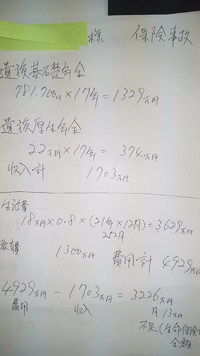 様 保険事故
遺族基礎年金
781.700円×17年=1329万円
遺族厚生年金
22万円×17年= 374万円
収入計 1703万円
生活費
18万円×0.8×(21年×12月)=3629万円
252月
1300万円 費用計 4929万円
4929万円 - 1703万円 = 3226万円
費用 収入
不足(生命保険
金額